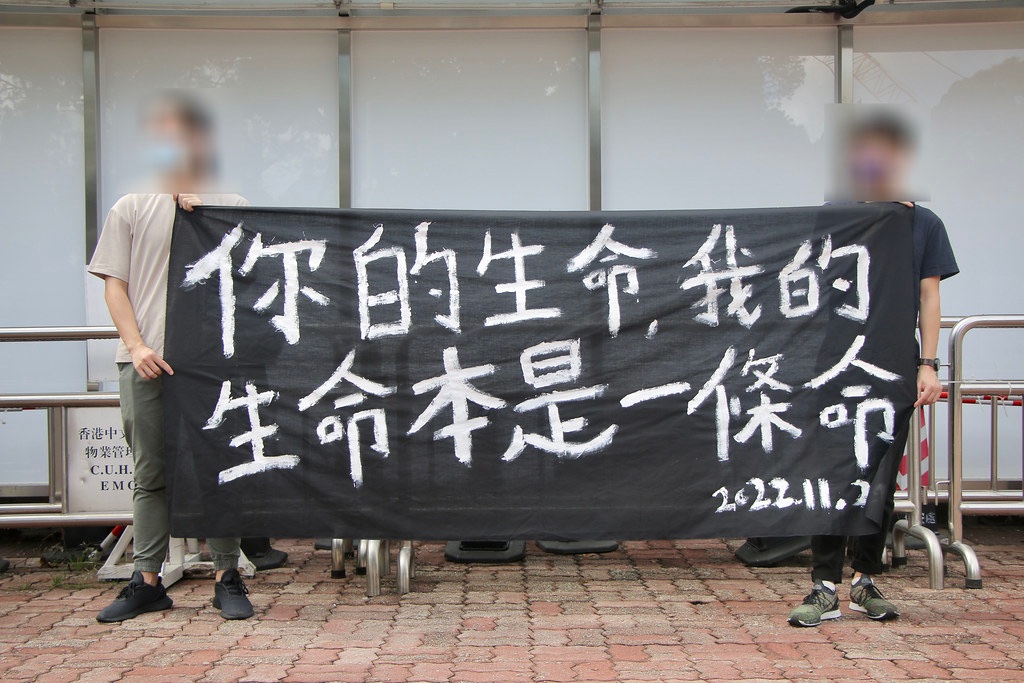 你的生命,我的
生命本是一條命
2022.11.2
香港中
物業管
C.U.H.
EMO